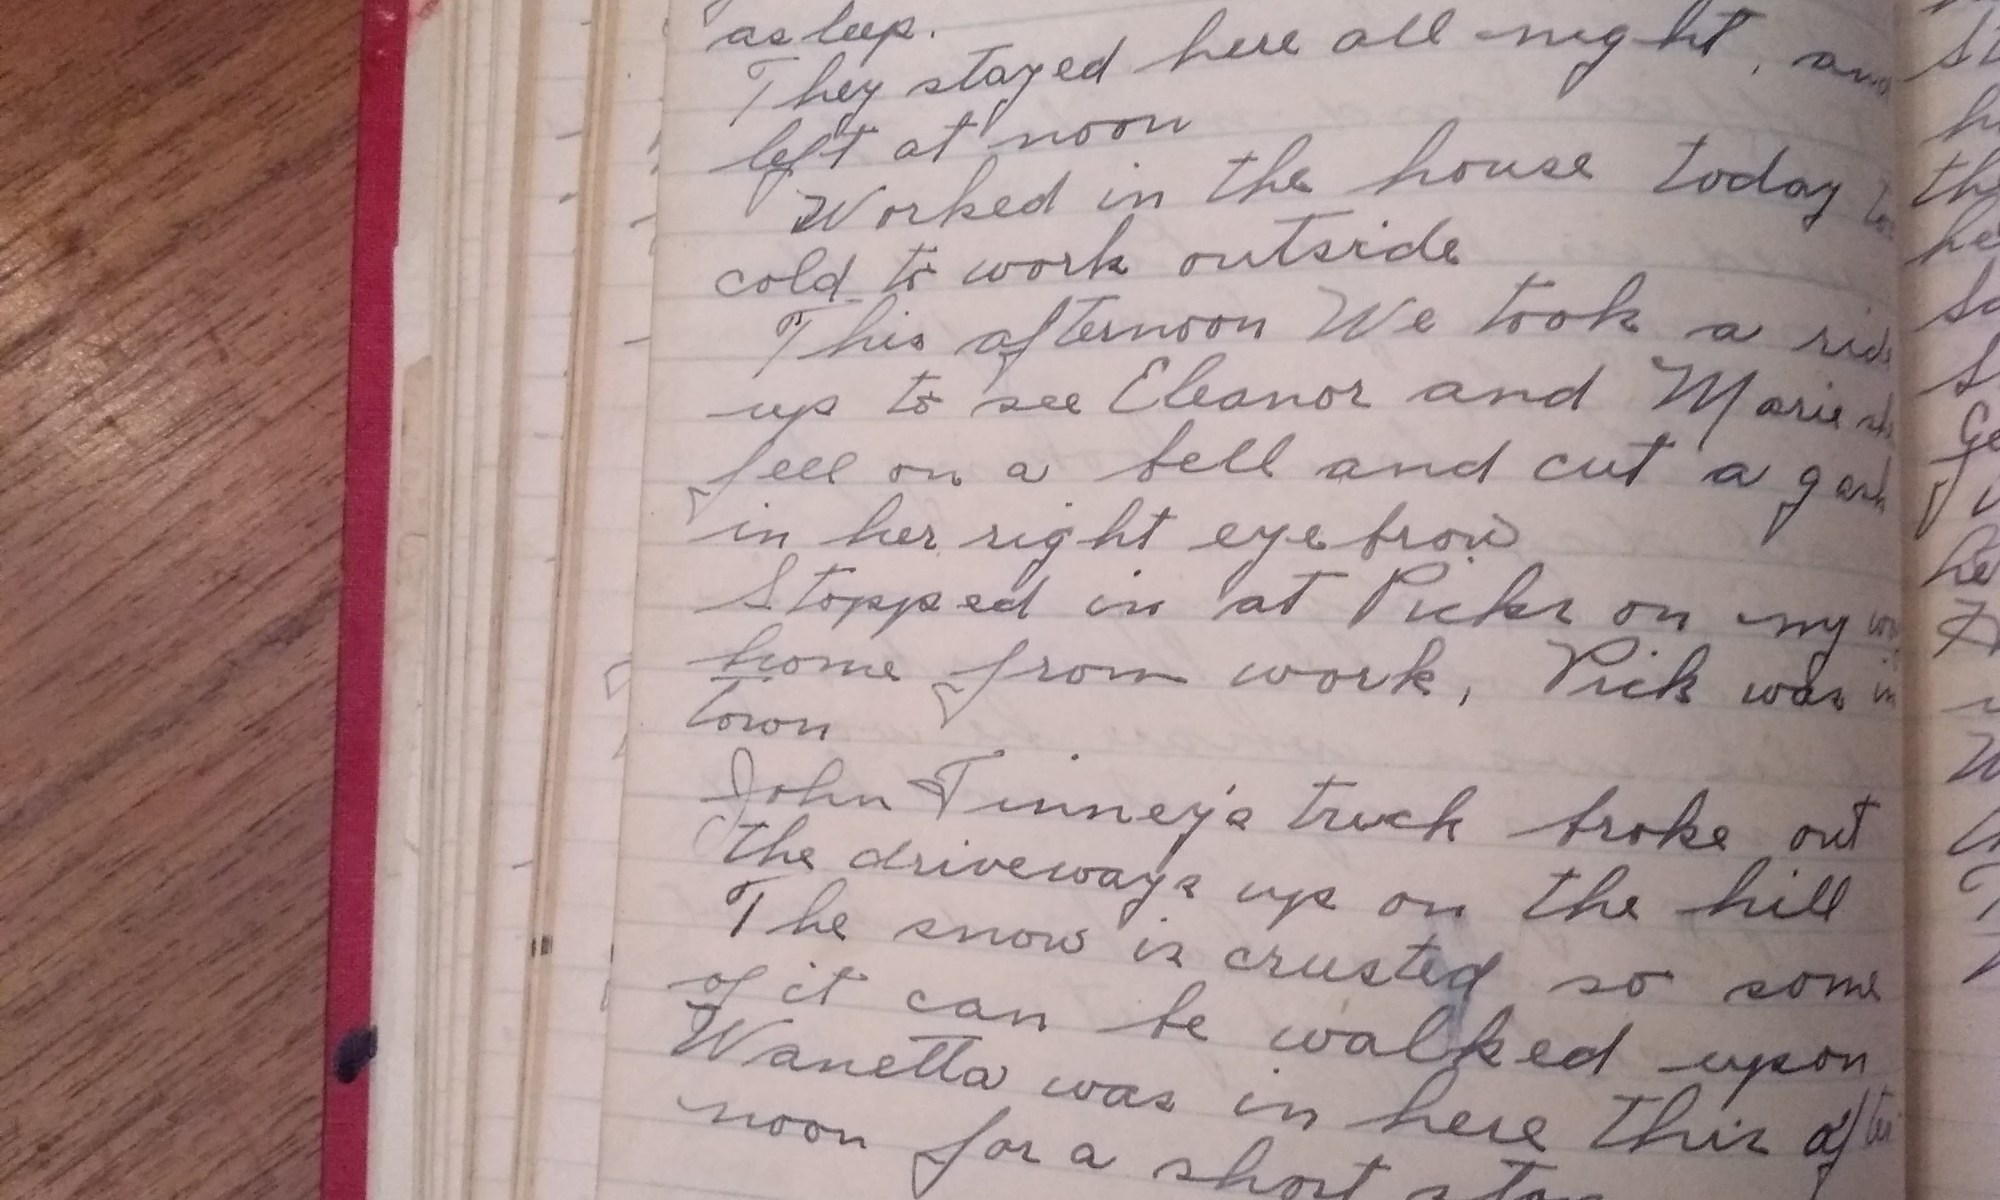 asleep.
They stayed here all night, and
left at noon
Worked in the house today to
cold to work outside
This afternoon We took a ride
up to see Eleanor and Marie she
fell on a bell and cut a gash
in her right eye brow
Stopped in at Picks on my
home from work, Pick was in
town
John Tinney's truck broke out
the driveways up on the hill
The snow is crusted so some
of it can be walked upon
Wanetta was in here this after
noon for a short